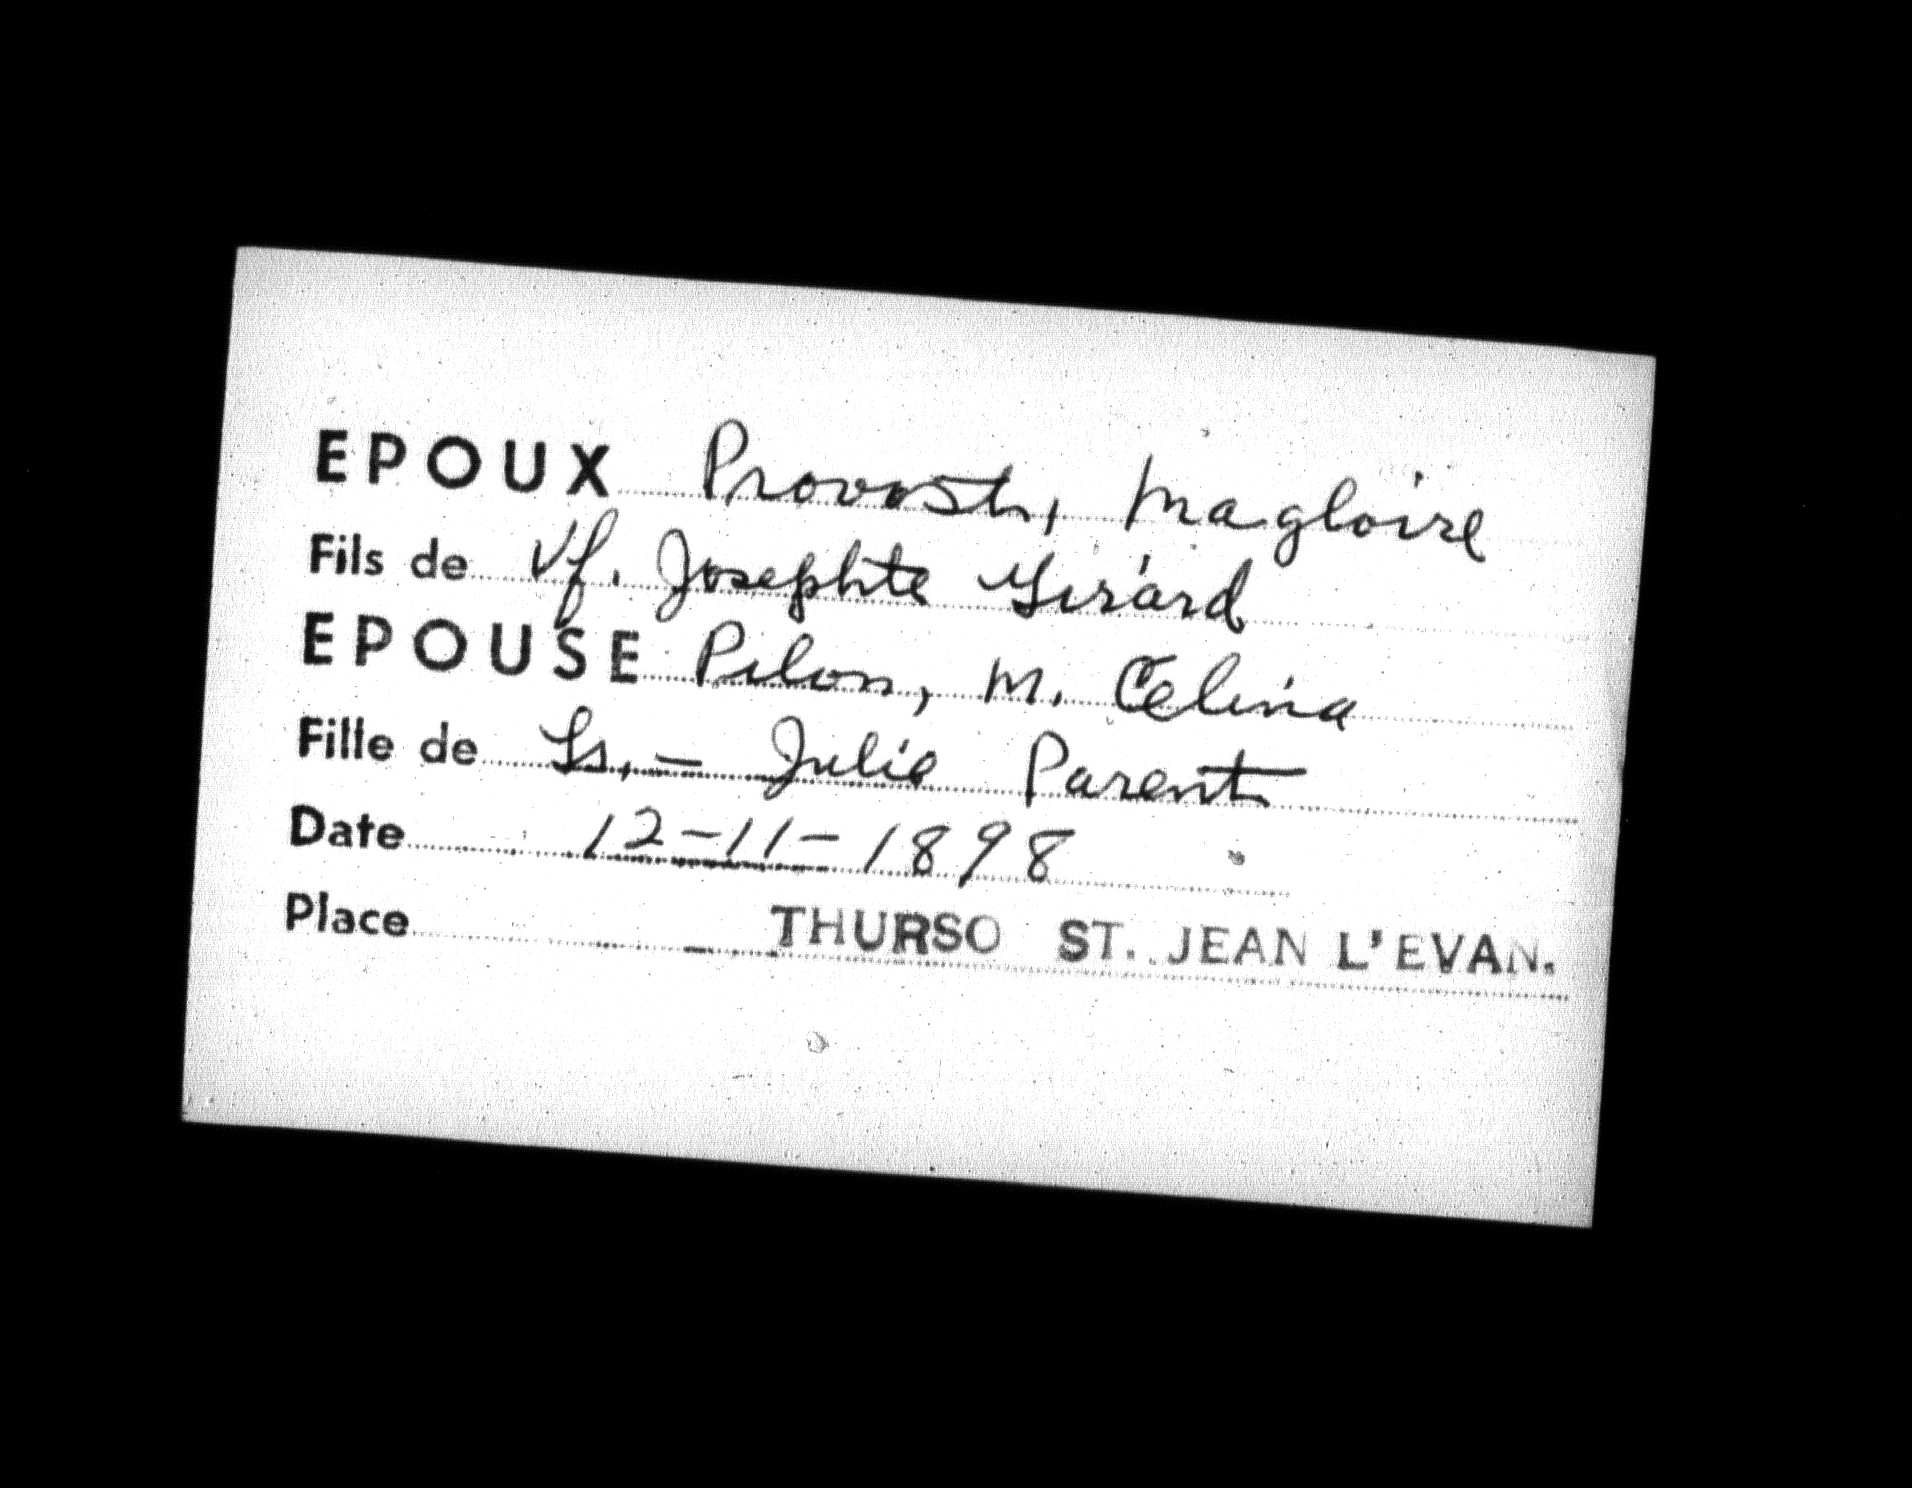 EPOUX Provost, Magloire
Fils de Vf. Josephte Girard
EPOUSE Pilon, M. Célina
Fille de Ls, – Julie Parent
Date 12-11-1898
Place THURSO ST. JEAN L'EVAN.